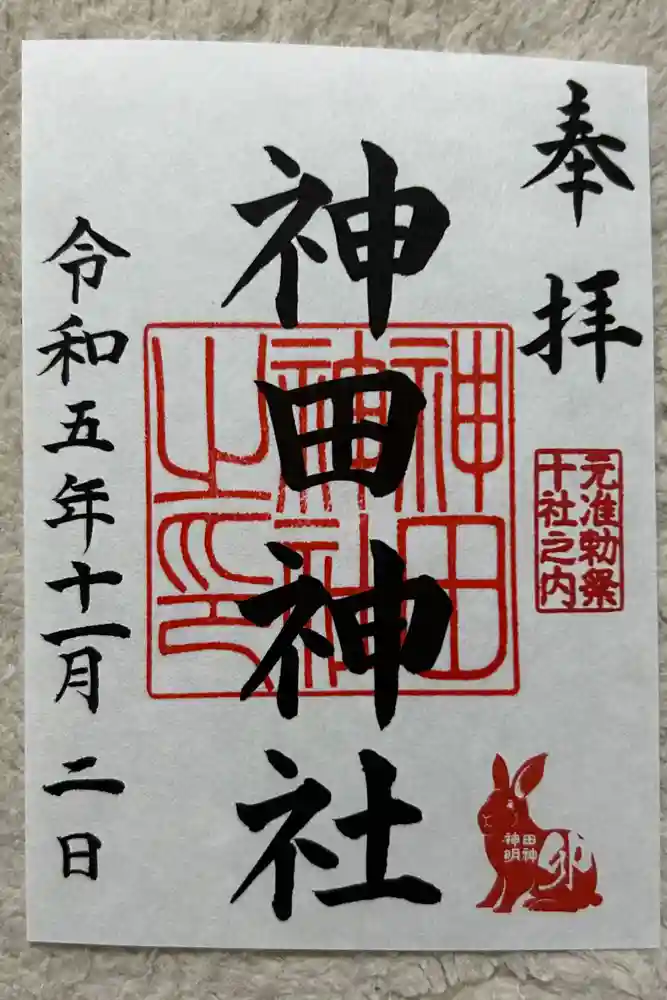 奉拝
元准勅祭
十社之内
神田神社
神田
神社
之印
令和五年十一月二日
田神
神明
卯